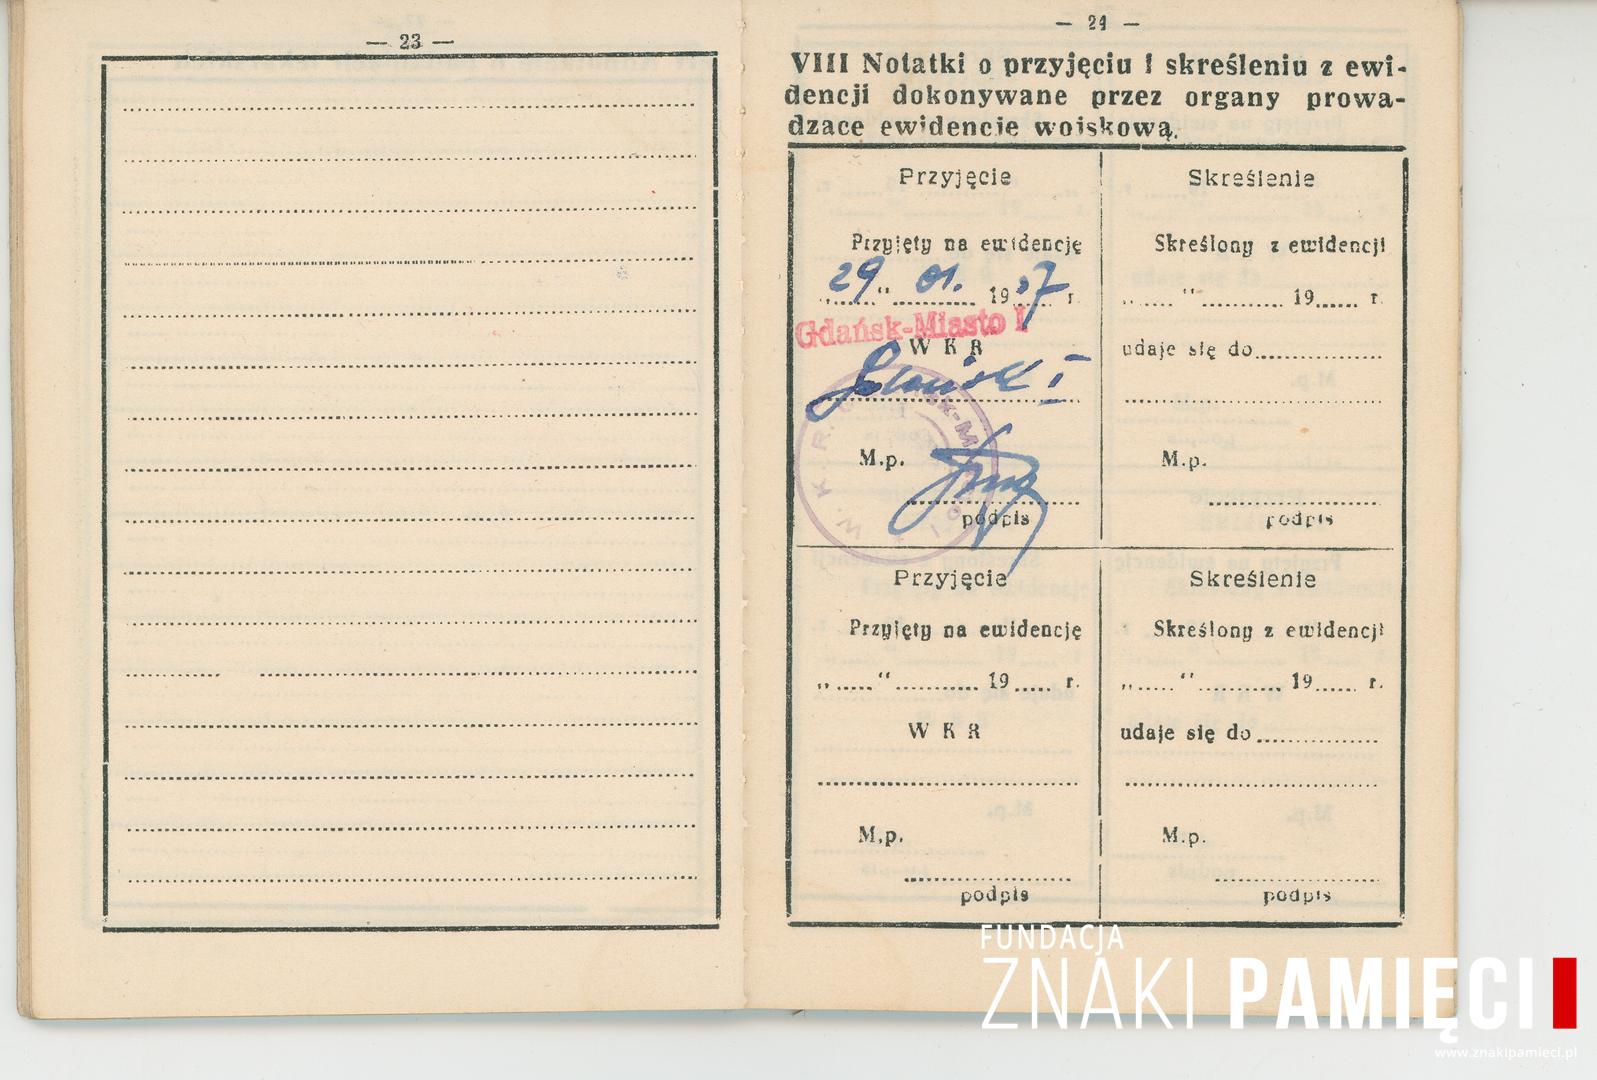 — 23 —
— 24 —
VIII Notatki o przyjęciu i skreśleniu z ewi-
dencji dokonywane przez organy prowa-
dzace ewidencie woiskową.
Przyjęcie
Przyjęty na ewidencję
„29“ 01. 1957 r.
Gdańsk-Miasto I
W K R
Gdańsk I
M.p.
W. K. R.
podpis
Skreślenie
Skreślony z ewidencji
„......“ 19...... r.
udaje się do
M.p.
podpis
Przyjęcie
Przyjęty na ewidencję
„......“ 19..... r.
W K R
M.p.
podpis
Skreślenie
Skreślony z ewidencji
„......“ 19...... r.
udaje się do
M.p.
podpis
FUNDACJA
ZNAKI PAMIĘCI
www.znakipamieci.pl